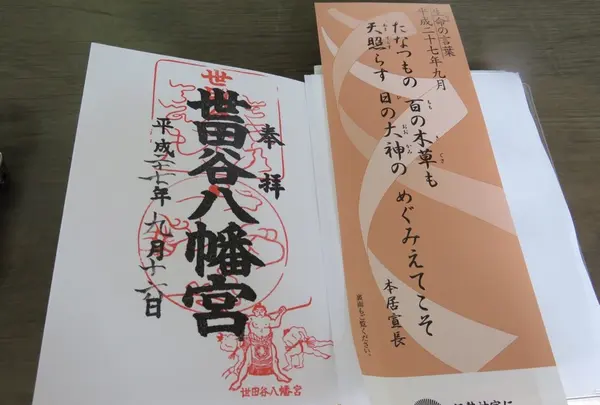 奉拝
世田谷八幡宮
平成 年 九月十二日
世田谷八幡宮
生命の言葉
平成二十七年九月
たなつもの 百の木草も
天照らす 日の大神の めぐみえてこそ
本居宣長
裏面もご覧ください。